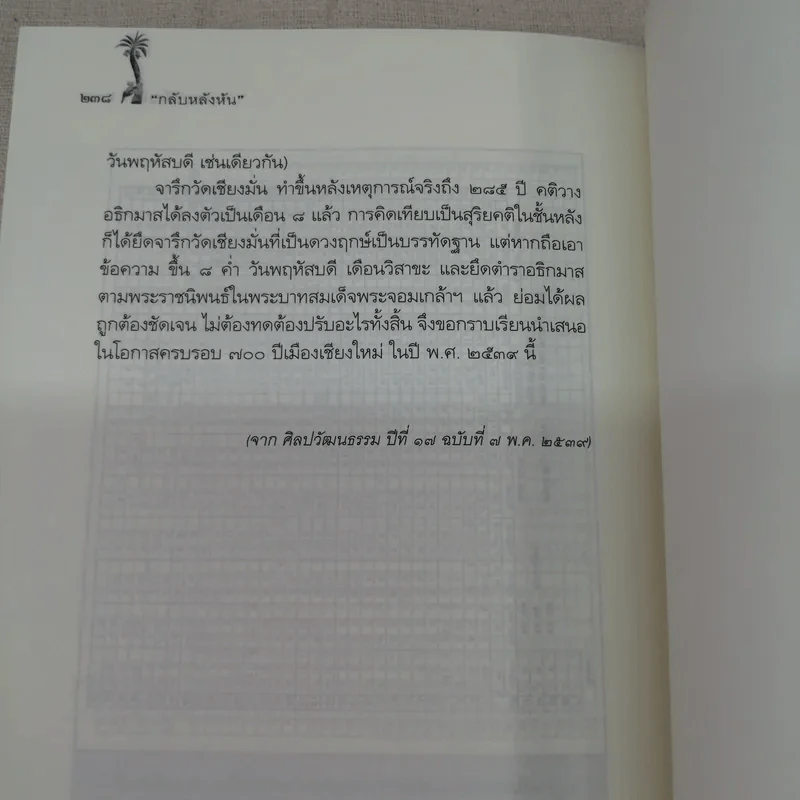 ๒๓๘ "กลับหลังหัน"
วันพฤหัสบดี เช่นเดียวกัน)
จารึกวัดเชียงมั่น ทำขึ้นหลังเหตุการณ์จริงถึง ๒๘๕ ปี คติวาง
อธิกมาสได้ลงตัวเป็นเดือน ๘ แล้ว การคิดเทียบเป็นสุริยคติในชั้นหลัง
ก็ได้ยึดจารึกวัดเชียงมั่นที่เป็นดวงฤกษ์เป็นบรรทัดฐาน แต่หากถือเอา
ข้อความ ขึ้น ๘ ค่ำ วันพฤหัสบดี เดือนวิสาขะ และยึดตำราอธิกมาส
ตามพระราชนิพนธ์ในพระบาทสมเด็จพระจอมเกล้าฯ แล้ว ย่อมได้ผล
ถูกต้องชัดเจน ไม่ต้องทดต้องปรับอะไรทั้งสิ้น จึงขอกราบเรียนนำเสนอ
ในโอกาสครบรอบ ๗๐๐ ปีเมืองเชียงใหม่ ในปี พ.ศ. ๒๕๓๙ นี้
(จาก ศิลปวัฒนธรรม ปีที่ ๑๗ ฉบับที่ ๗ พ.ค. ๒๕๓๙)